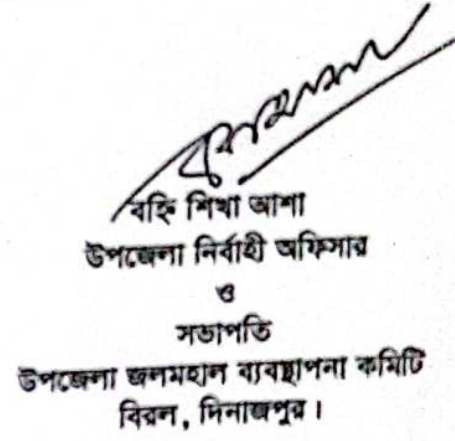 বহ্নি শিখা আশা
উপজেলা নির্বাহী অফিসার
ও
সভাপতি
উপজেলা জলমহাল ব্যবস্থাপনা কমিটি
বিরল, দিনাজপুর।